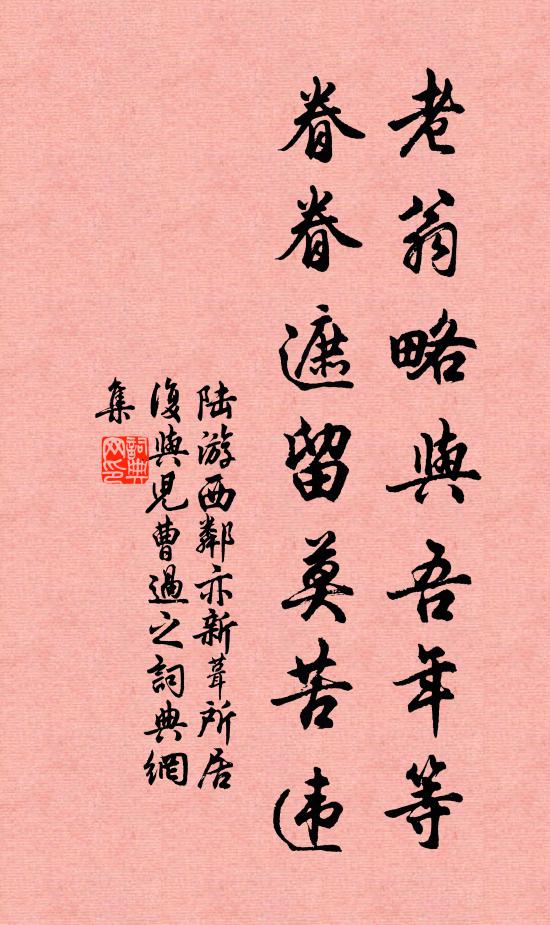 老翁略與吾年等
眷眷遮留莫苦违
陆游西鄰亦新葺所居
復與兒曹過之詞典網
集
詞典网印